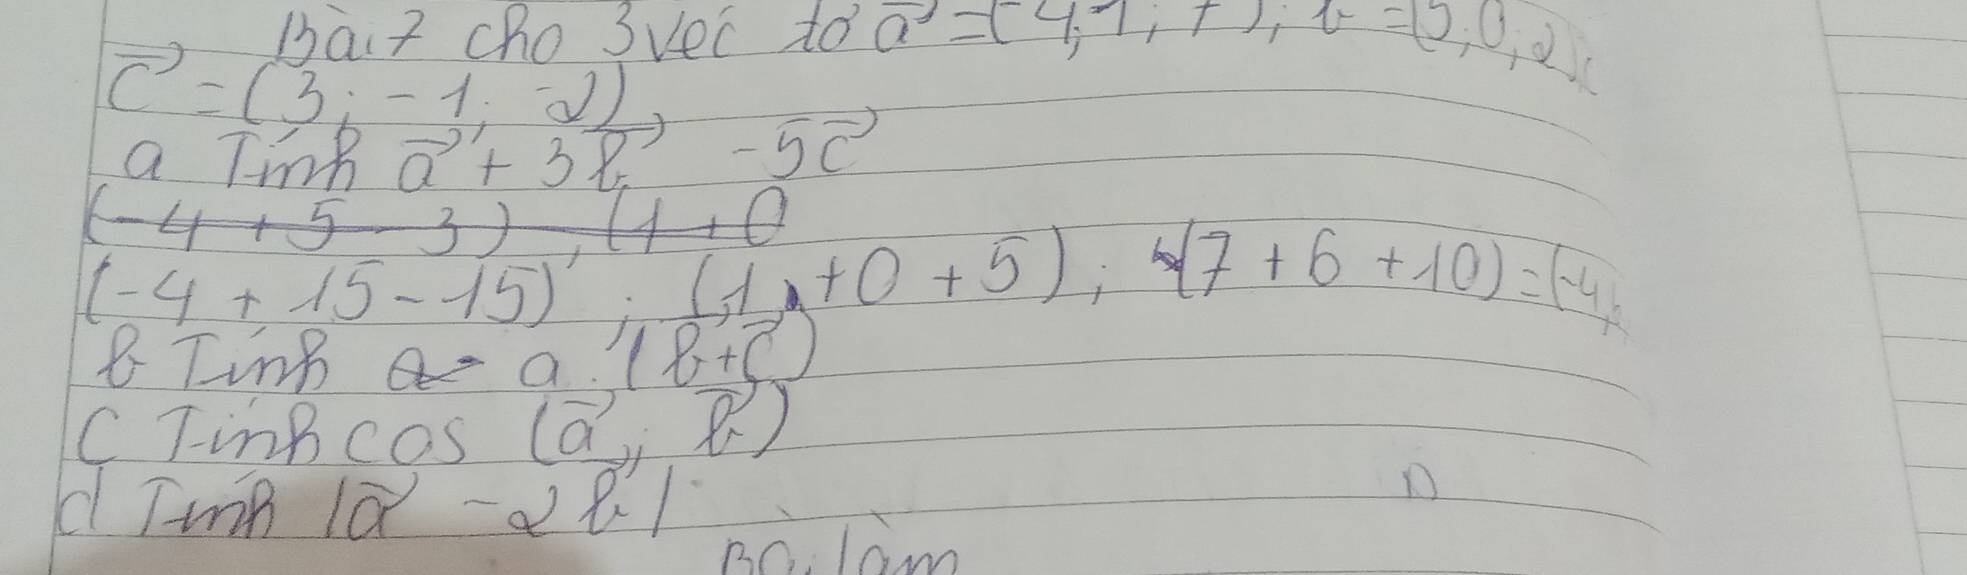 Bài 7 cho 3 véc tơ a⃗ = (-4; 1; 7); b⃗ = (5; 0; 2);
c⃗ = (3; -1; -2)
a Tính a⃗ + 3b⃗ - 5c⃗
(-4 + 5 - 3), (1 + 0
(-4 + 15 - 15); (1 + 0 + 5); (7 + 6 + 10) = (-4;
b Tính a . (b⃗ + c⃗)
c Tính cos (a⃗; b⃗)
d Tính |a⃗ - 2b⃗|
Bài làm